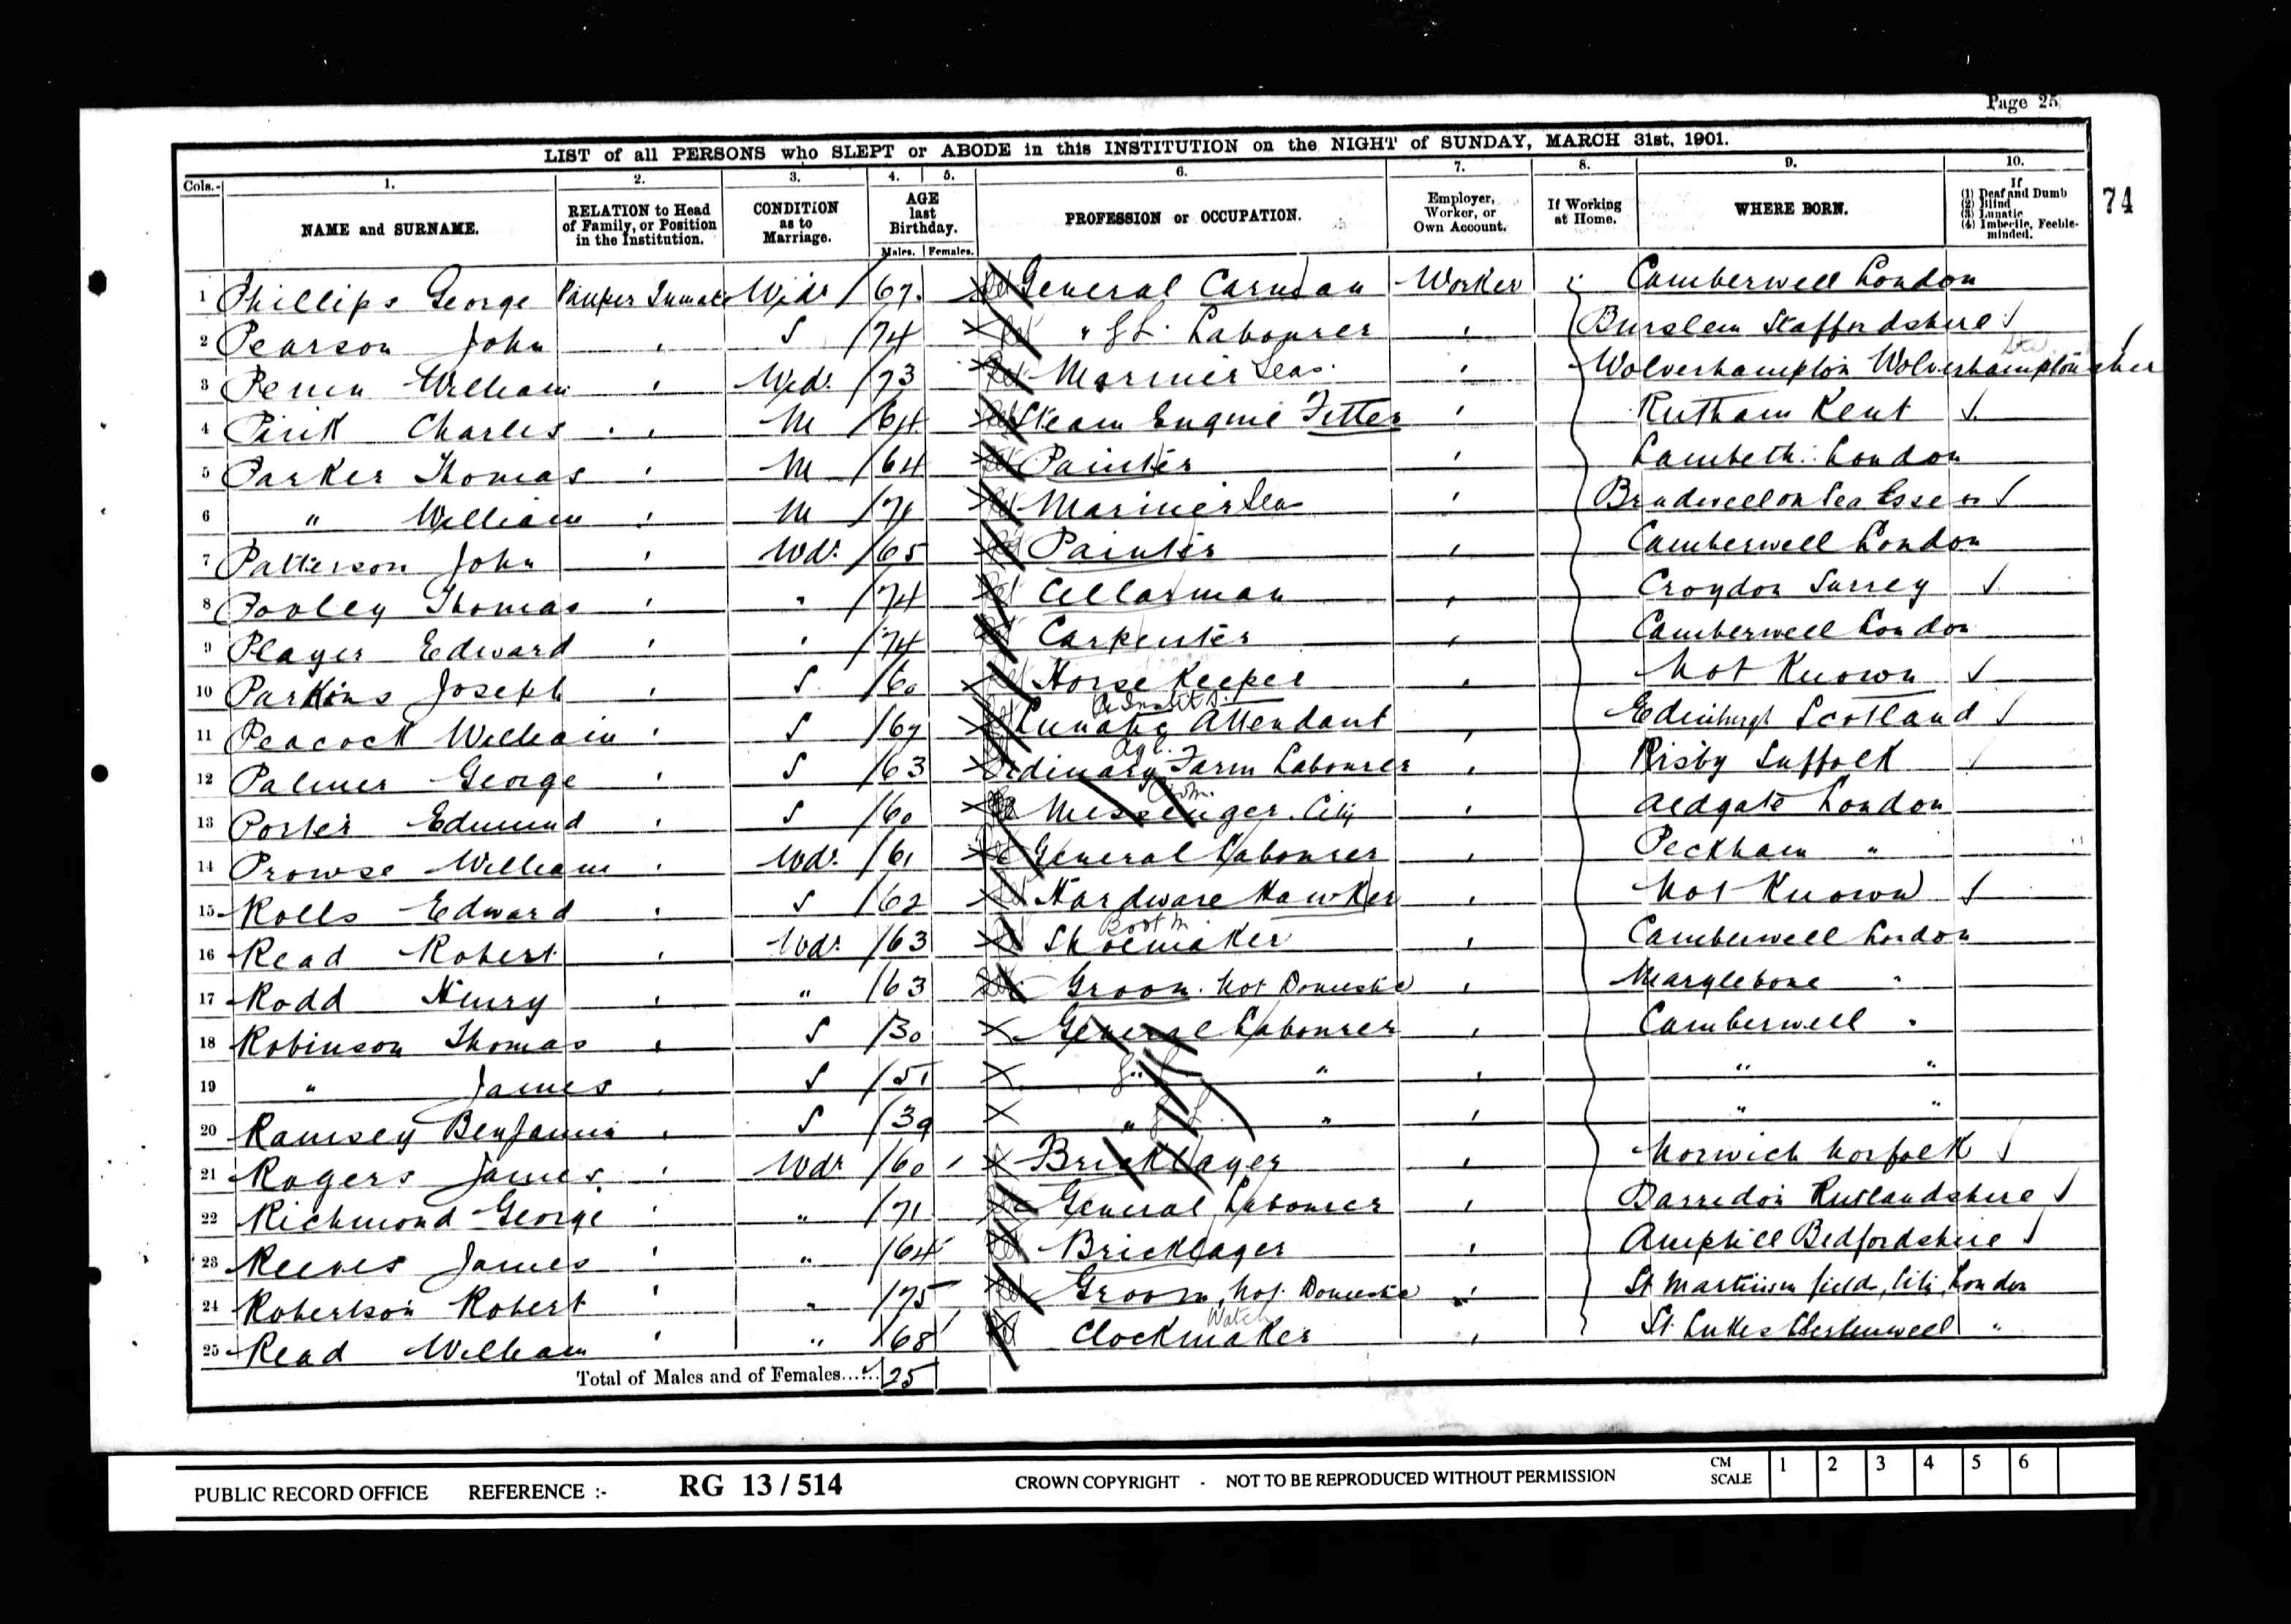 Page 25
LIST of all PERSONS who SLEPT or ABODE in this INSTITUTION on the NIGHT of SUNDAY, MARCH 31st, 1901.
Cols.- 1. 2. 3. 4. 5. 6. 7. 8. 9. 10.
NAME and SURNAME. RELATION to Head of Family, or Position in the Institution. CONDITION as to Marriage. AGE last Birthday. Males. Females. PROFESSION or OCCUPATION. Employer, Worker, or Own Account. If Working at Home. WHERE BORN. If (1) Deaf and Dumb (2) Blind (3) Lunatic (4) Imbecile, Feeble-minded.
74
1 Phillips George Pauper Inmate Widr 67 General Carman Worker Camberwell London
2 Pearson John " S 74 " G L. Labourer " Burslem Staffordshire
3 William " Wdr 73 Mariner Seas. " Wolverhampton Wolverhampton
4 Charles " M 64 Steam Engine Fitter " Kent
5 Parker Thomas " M 64 Painter " Lambeth London
6 " William " M 71 Mariner Sea " Bradwell on Sea Essex
7 Patterson John " Wdr 65 Painter " Camberwell London
8 Pooley Thomas " " 74 Cellarman " Croydon Surrey
9 Player Edward " " 74 Carpenter " Camberwell London
10 Parkins Joseph " S 60 Horse Keeper " Not Known
11 Peacock William " S 67 Lunatic Attendant " Edinburgh Scotland
12 Palmer George " S 63 Ordinary Agl. Farm Labourer " Risby Suffolk
13 Porter Edmund " S 60 Messenger Com. City " Aldgate London
14 Prowse William " Wdr 61 General Labourer " Peckham "
15 Rolls Edward " S 62 Hardware Hawker " Not Known
16 Read Robert " Wdr 63 Boot M Shoemaker " Camberwell London
17 Rodd Henry " " 63 Groom. Not Domestic " Marylebone "
18 Robinson Thomas " S 30 General Labourer " Camberwell "
19 " James " S 51 " G L " " " "
20 Ramsey Benjamin " S 39 " G L " " " "
21 Rogers James " Wdr 60 Bricklayer " Norwich Norfolk
22 Richmond George " " 71 General Labourer " Rutlandshire
23 Reeves James " " 64 Bricklayer " Ampthill Bedfordshire
24 Robertson Robert " " 75 Groom, Not Domestic " St Martins in fields, City, London
25 Read William " " 68 Watch Clockmaker " St. Lukes Clerkenwell "
Total of Males and of Females...... 25
PUBLIC RECORD OFFICE REFERENCE :- RG 13 / 514 CROWN COPYRIGHT - NOT TO BE REPRODUCED WITHOUT PERMISSION CM SCALE 1 2 3 4 5 6